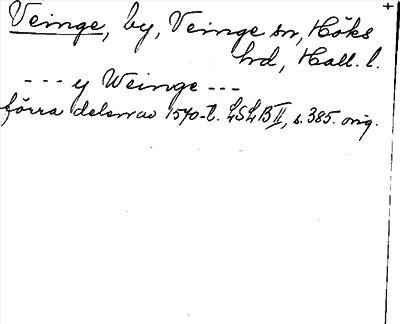 Veinge, by, Veinge sn, Höks
hrd, Hall. l.
--- y Weinge ---
förra delen av 1540-t. LSLB II, s. 385. orig.